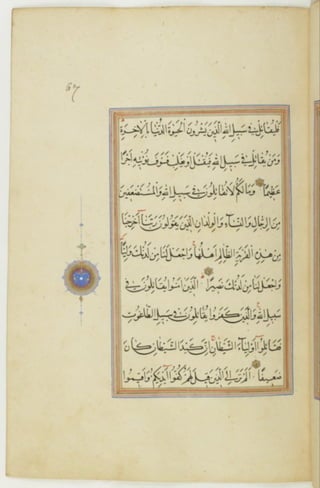 67
فَلْيُقَاتِلْ فِي سَبِيلِ اللهِ الَّذِينَ يَشْرُونَ الْحَيٰوةَ الدُّنْيَا بِالْاٰخِرَةِ
وَمَنْ يُقَاتِلْ فِي سَبِيلِ اللهِ فَيُقْتَلْ اَوْ يَغْلِبْ فَسَوْفَ نُؤْتِيهِ اَجْرًا
عَظِيمًا وَمَا لَكُمْ لَا تُقَاتِلُونَ فِي سَبِيلِ اللهِ وَالْمُسْتَضْعَفِينَ
مِنَ الرِّجَالِ وَالنِّسَآءِ وَالْوِلْدَانِ الَّذِينَ يَقُولُونَ رَبَّنَا اَخْرِجْنَا
مِنْ هٰذِهِ الْقَرْيَةِ الظَّالِمِ اَهْلُهَا وَاجْعَلْ لَنَا مِنْ لَدُنْكَ وَلِيًّا
وَاجْعَلْ لَنَا مِنْ لَدُنْكَ نَصِيرًا الَّذِينَ اٰمَنُوا يُقَاتِلُونَ فِي
سَبِيلِ اللهِ وَالَّذِينَ كَفَرُوا يُقَاتِلُونَ فِي سَبِيلِ الطَّاغُوتِ
فَقَاتِلُوا اَوْلِيَآءَ الشَّيْطَانِ اِنَّ كَيْدَ الشَّيْطَانِ كَانَ
ضَعِيفًا اَلَمْ تَرَ اِلَى الَّذِينَ قِيلَ لَهُمْ كُفُّوا اَيْدِيَكُمْ وَاَقِيمُوا